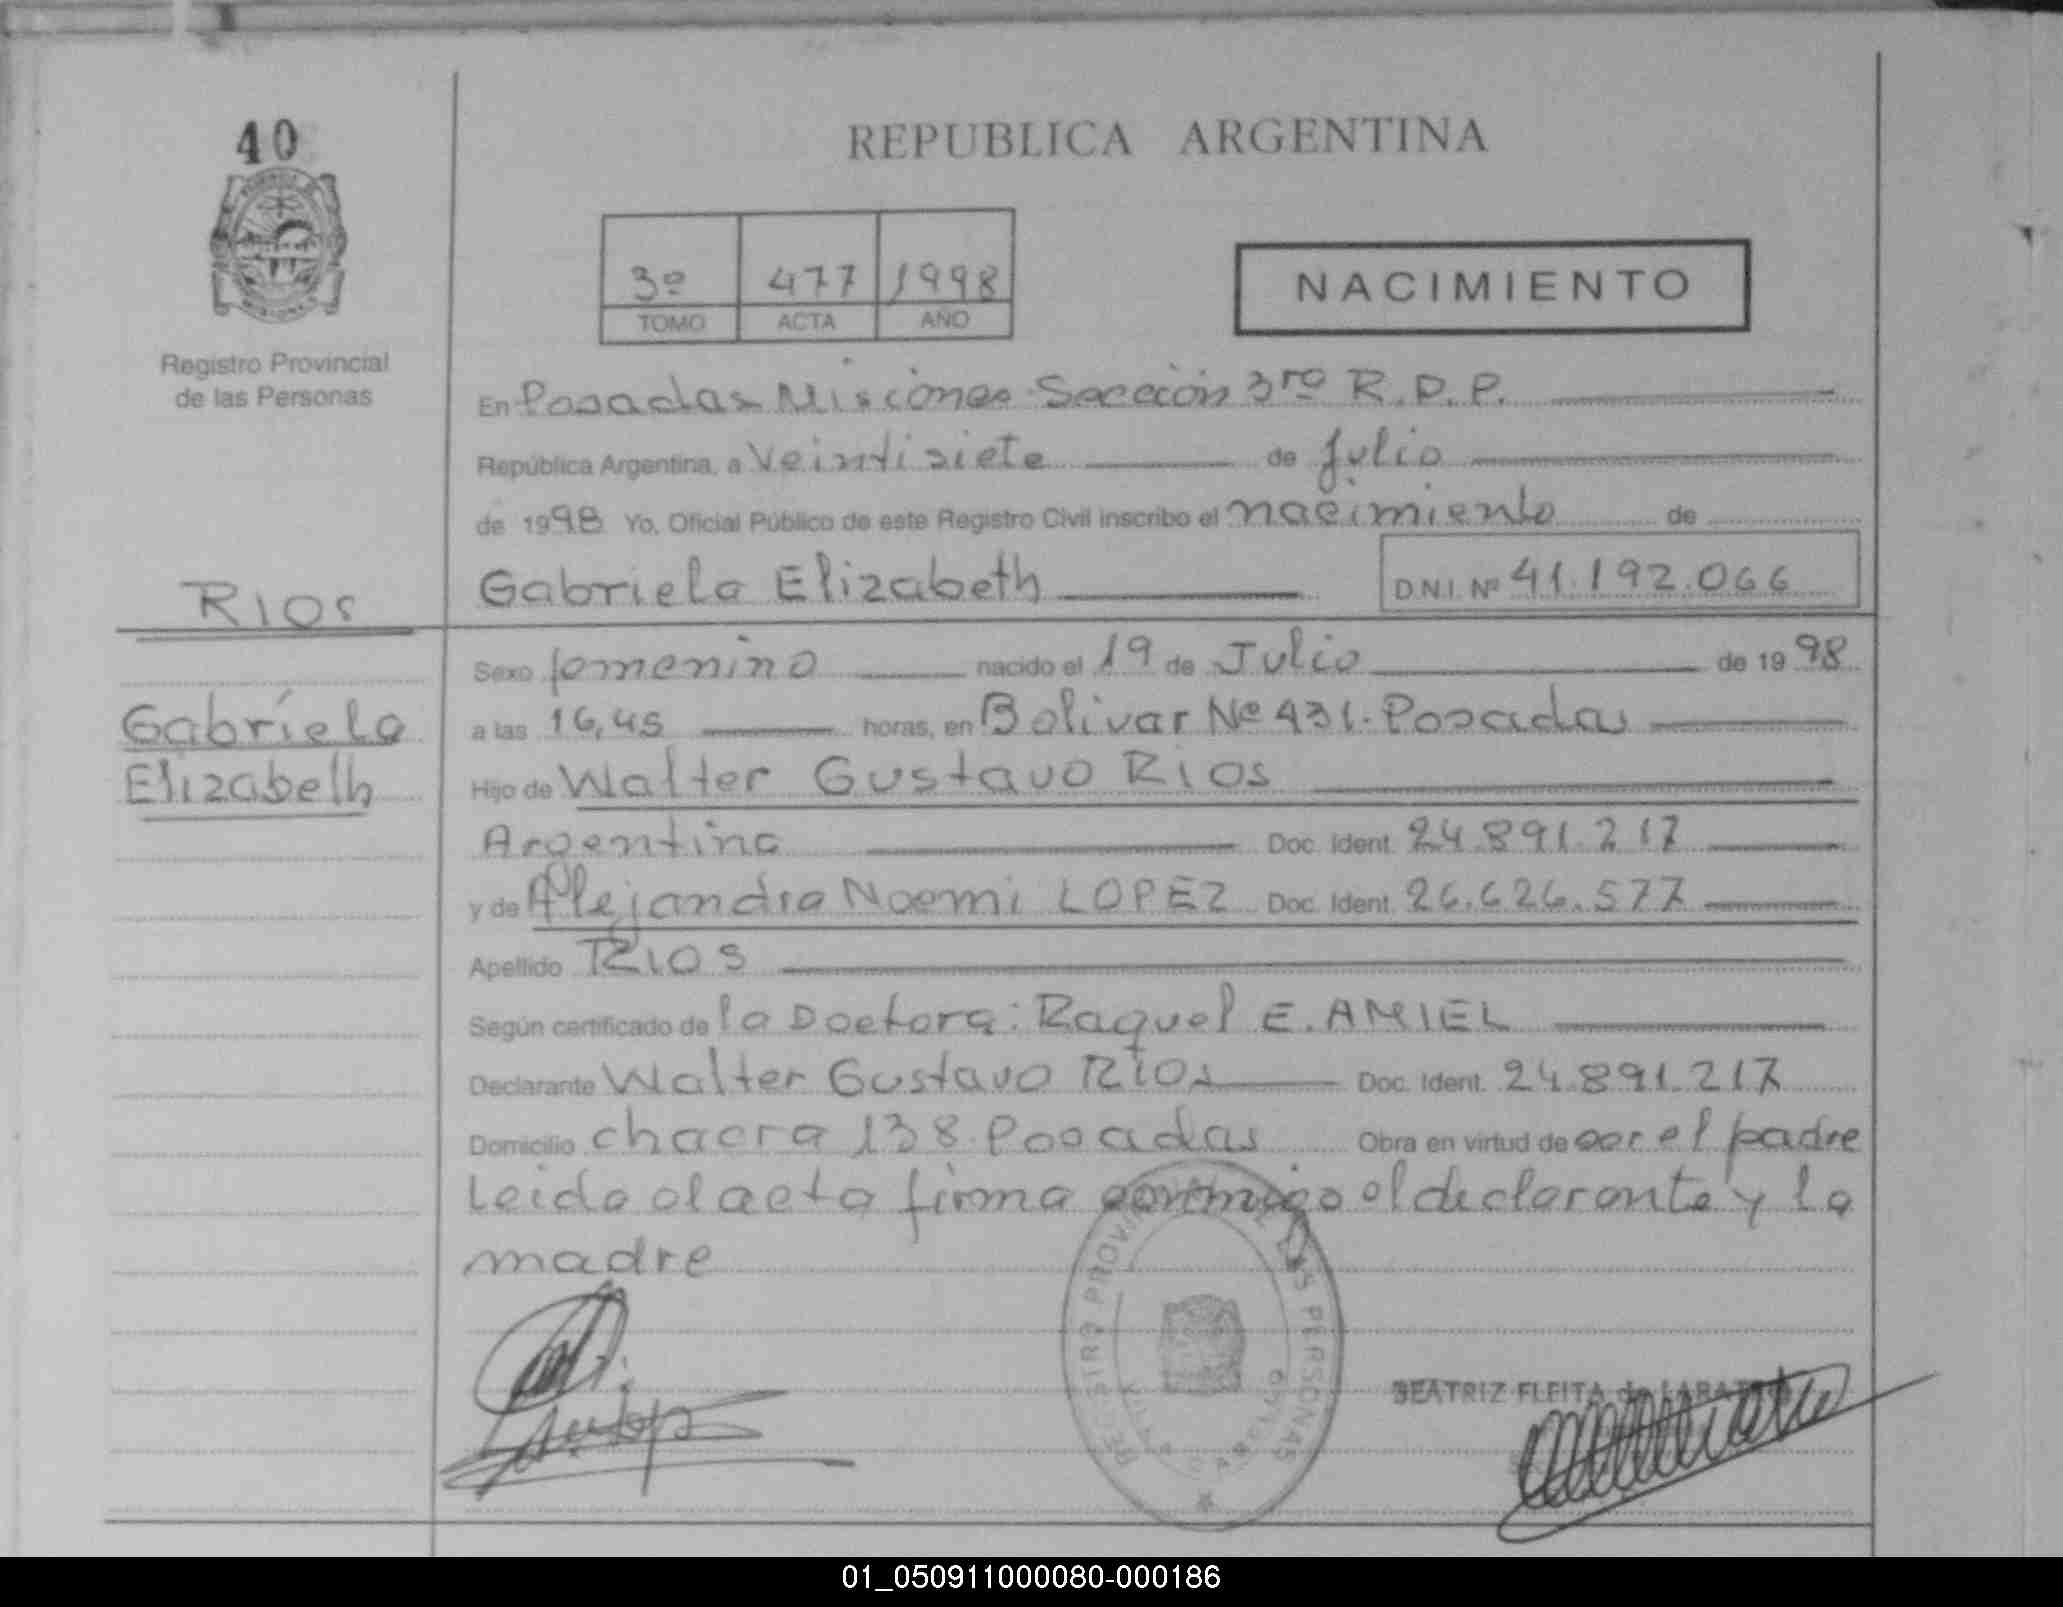 40
REPUBLICA ARGENTINA
3º 477 1998
TOMO ACTA AÑO
NACIMIENTO
Registro Provincial
de las Personas
En Posadas Misiones Sección 3ra R.P.P.
República Argentina, a Veintisiete de Julio
de 1998 Yo, Oficial Público de este Registro Civil inscribo el nacimiento de
RIOS
Gabriela Elizabeth D.N.I. Nº 41.192.066
Sexo femenino nacido el 19 de Julio de 1998
Gabriela
a las 16,45 horas, en Bolivar Nº 431. Posadas
Elizabeth
Hijo de Walter Gustavo Rios
Argentina Doc. Ident. 24.891.217
y de Alejandra Noemi LOPEZ Doc. Ident. 26.626.577
Apellido RIOS
Según certificado de la Doctora: Raquel E. AMIEL
Declarante Walter Gustavo RIOS Doc. Ident. 24.891.217
Domicilio chacra 138. Posadas Obra en virtud de ser el padre
Leida el acta firma conmigo el declarante y la
madre
REGISTRO PROVINCIAL DE LAS PERSONAS
BEATRIZ FLEITA de
01_050911000080-000186